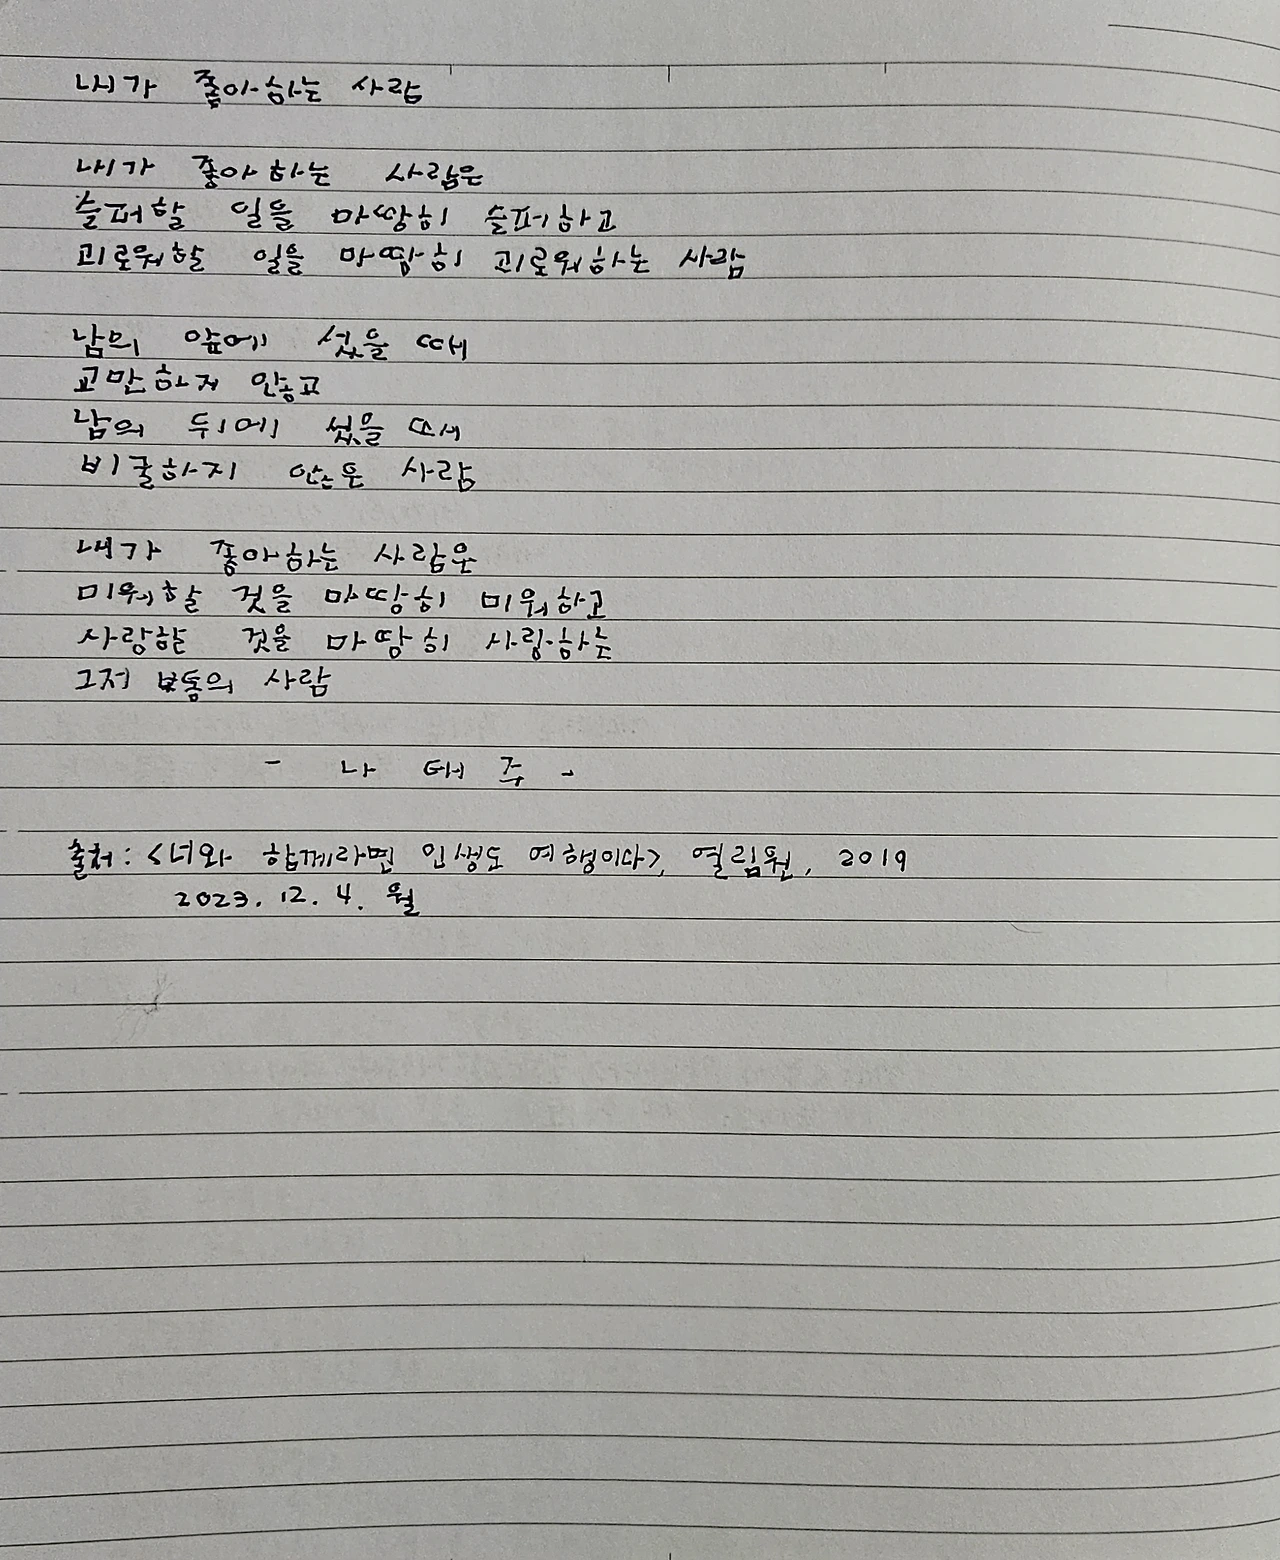 내가 좋아하는 사람
내가 좋아하는 사람은
슬퍼할 일을 마땅히 슬퍼하고
괴로워할 일을 마땅히 괴로워하는 사람
남의 앞에 섰을 때
교만하지 않고
남의 뒤에 섰을 때
비굴하지 않은 사람
내가 좋아하는 사람은
미워할 것을 마땅히 미워하고
사랑할 것을 마땅히 사랑하는
그저 보통의 사람
- 나 태 주 -
출처: <너와 함께라면 인생도 여행이다>, 열림원, 2019
2023. 12. 4. 월